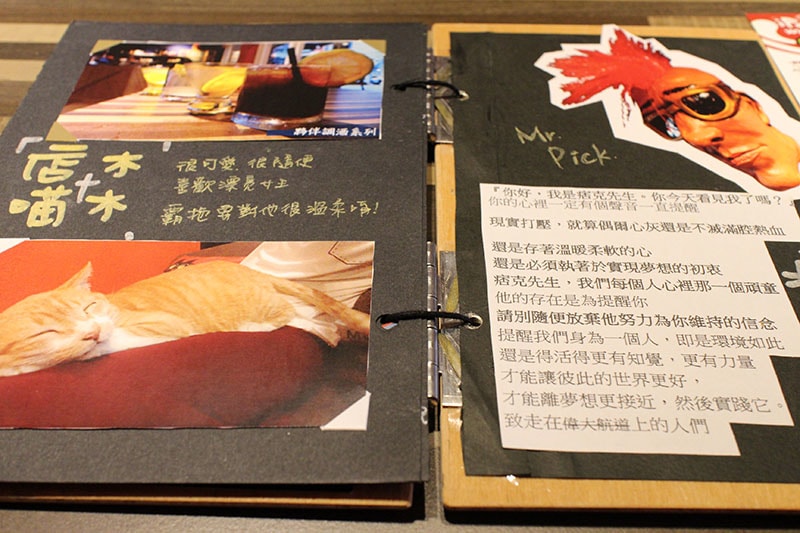 夥伴調酒系列
「店喵
木木
很可愛 很隨便
喜歡漂亮女生
Mr.
Pick.
『你好，我是痞克先生。你今天看見我了嗎？
你的心裡一定有個聲音一直提醒
現實打壓，就算偶爾心灰還是不滅滿腔熱血
還是存著溫暖柔軟的心
還是必須執著於實現夢想的初衷
痞克先生，我們每個人心裡那一個頑童
他的存在是為提醒你
請別隨便放棄他努力為你維持的信念
提醒我們身為一個人，即是環境如此
還是得活得更有知覺，更有力量
才能讓彼此的世界更好，
才能離夢想更接近，然後實踐它。
致走在偉大航道上的人們